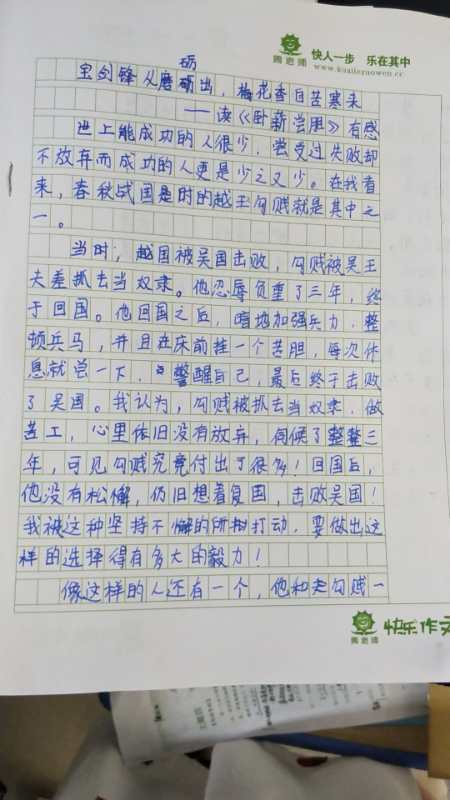 周老师
快人一步 乐在其中
www.kuailezuowen.cc
砺
宝剑锋从磨砺出，梅花香自苦寒来
——读《卧薪尝胆》有感
世上能成功的人很少，尝受过失败却
不放弃而成功的人更是少之又少。在我看
来，春秋战国是时的越王勾贱就是其中之
一。
当时，越国被吴国击败，勾贱被吴王
夫差抓去当奴隶。他忍辱负重了三年，终
于回国。他回国之后，暗地加强兵力，整
顿兵马，并且在床前挂一个苦胆，每次休
息就尝一下，警醒自己，最后终于击败
了吴国。我认为，勾贱被抓去当奴隶，做
苦工，心里依旧没有放弃，伺候了整整三
年，可见勾贱究竟付出了很多！回国后，
他没有松懈，仍旧想着复国，击败吴国！
我被这种坚持不懈的所打动，要做出这
样的选择得有多大的毅力！
像这样的人还有一个，他和勾贱一
周老师
快乐作文